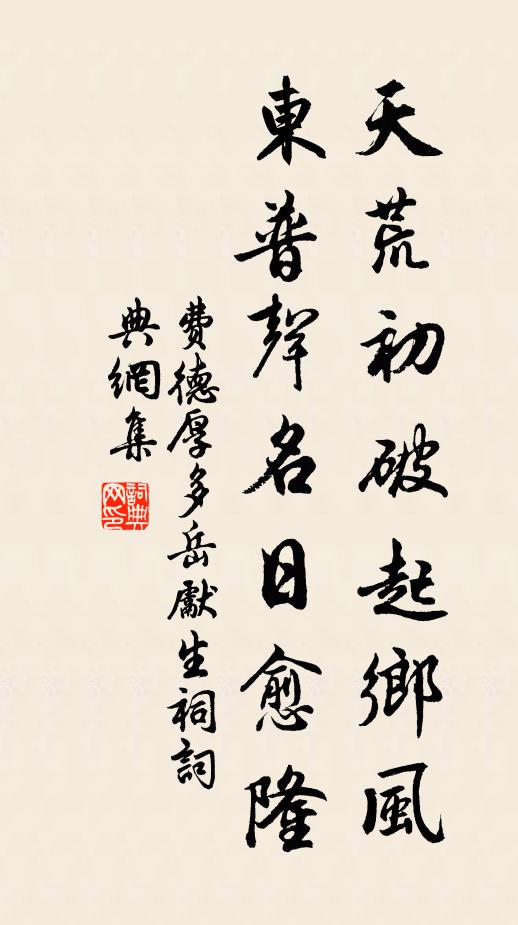 天荒初破起鄉風
東普聲名日愈隆
費德厚多岳獻生祠詞
典網集
詞典
网印